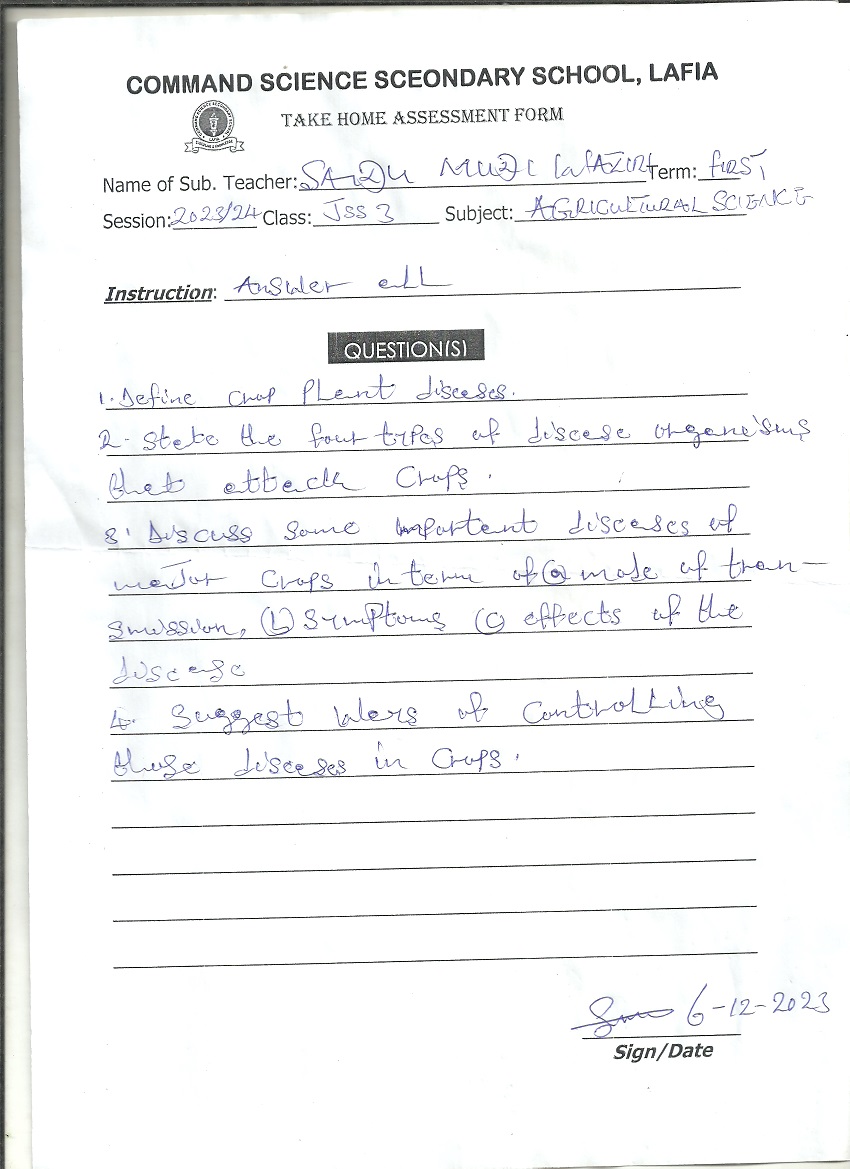 COMMAND SCIENCE SCEONDARY SCHOOL, LAFIA
TAKE HOME ASSESSMENT FORM
Name of Sub. Teacher: Term: FIRST
Session: 2023/24 Class: JSS 3 Subject: AGRICULTURAL SCIENCE
Instruction: Answer all
QUESTION(S)
1. Define crop plant diseases.
2. State the four types of disease organisms
that attack Crops.
3. Discuss some important diseases of
major crops in term of (a) mode of tran-
smission, (b) symptoms (c) effects of the
disease
4. Suggest ways of controlling
these diseases in crops.
6-12-2023
Sign/Date